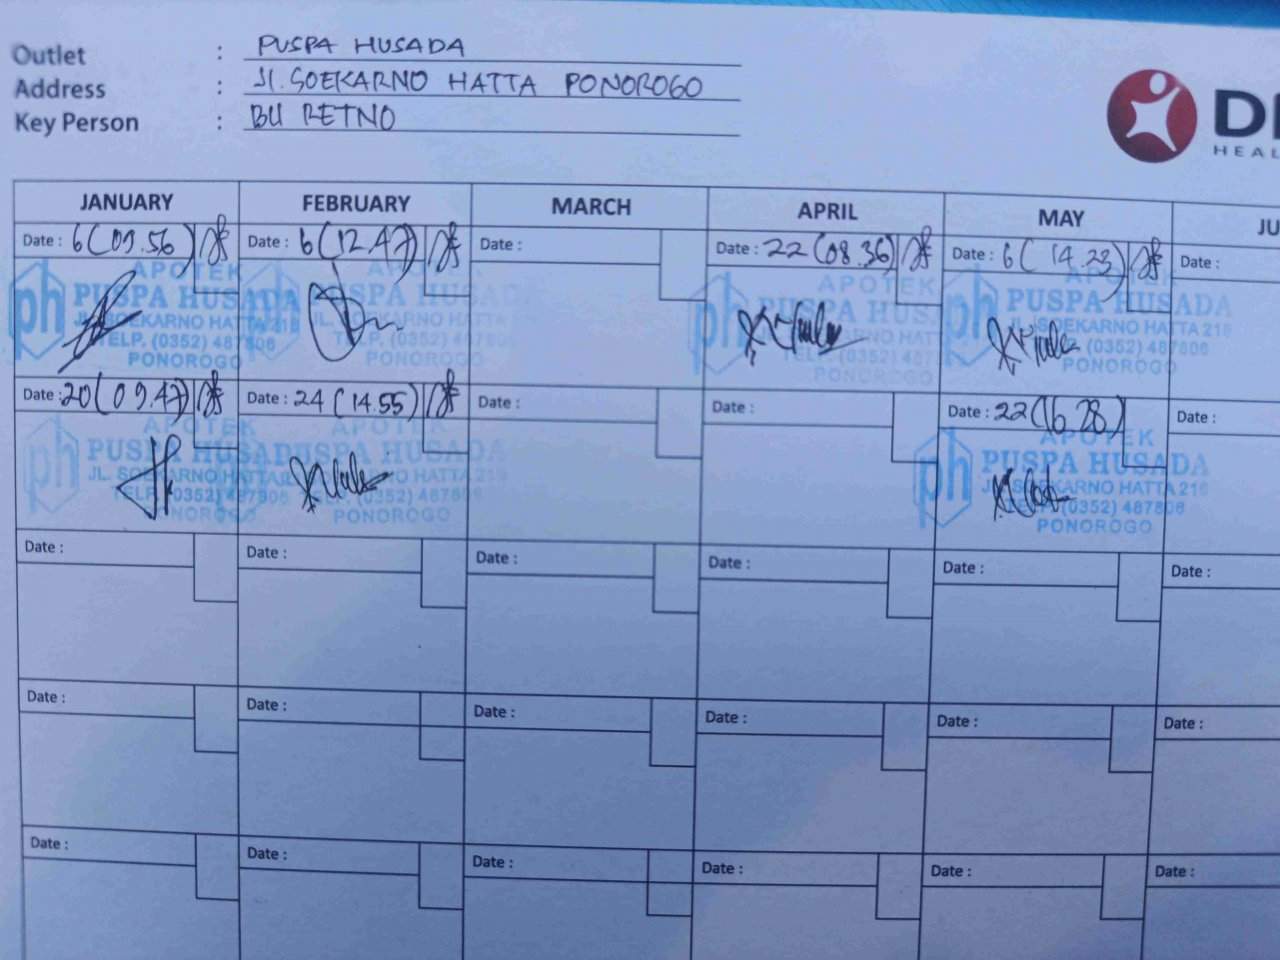 Outlet : PUSPA HUSADA
Address : Jl. SOEKARNO HATTA PONOROGO
Key Person : BU RETNO
HEAL
JANUARY FEBRUARY MARCH APRIL MAY JU
Date : 6 (09.56) Date : 6 (12.47) Date : Date : 22 (08.36) Date : 6 ( 14.23) Date :
APOTEK APOTEK APOTEK APOTEK
ph PUSPA HUSADA PUSPA HUSADA PUSPA HUSADA ph PUSPA HUSADA
JL. SOEKARNO HATTA 218 JL. SOEKARNO HATTA SOEKARNO HATTA JL. SOEKARNO HATTA 218
TELP. (0352) 487808 TELP. (0352) 487808 TELP. (0352) 487808 (0352) 487808
PONOROGO PONOROGO PONOROGO PONOROGO
Date : 20 (09.47) Date : 24 (14.55) Date : Date : Date : 22 (16.28) Date :
APOTEK APOTEK APOTEK
ph PUSPA HUSADA PUSPA HUSADA ph PUSPA HUSADA
JL. SOEKARNO HATTA SOEKARNO HATTA 218 JL. SOEKARNO HATTA 218
TELP. (0352) 487808 TELP. (0352) 487808 TELP. (0352) 487808
PONOROGO PONOROGO PONOROGO
Date : Date : Date : Date : Date : Date :
Date : Date : Date : Date : Date : Date :
Date : Date : Date : Date : Date : Date :